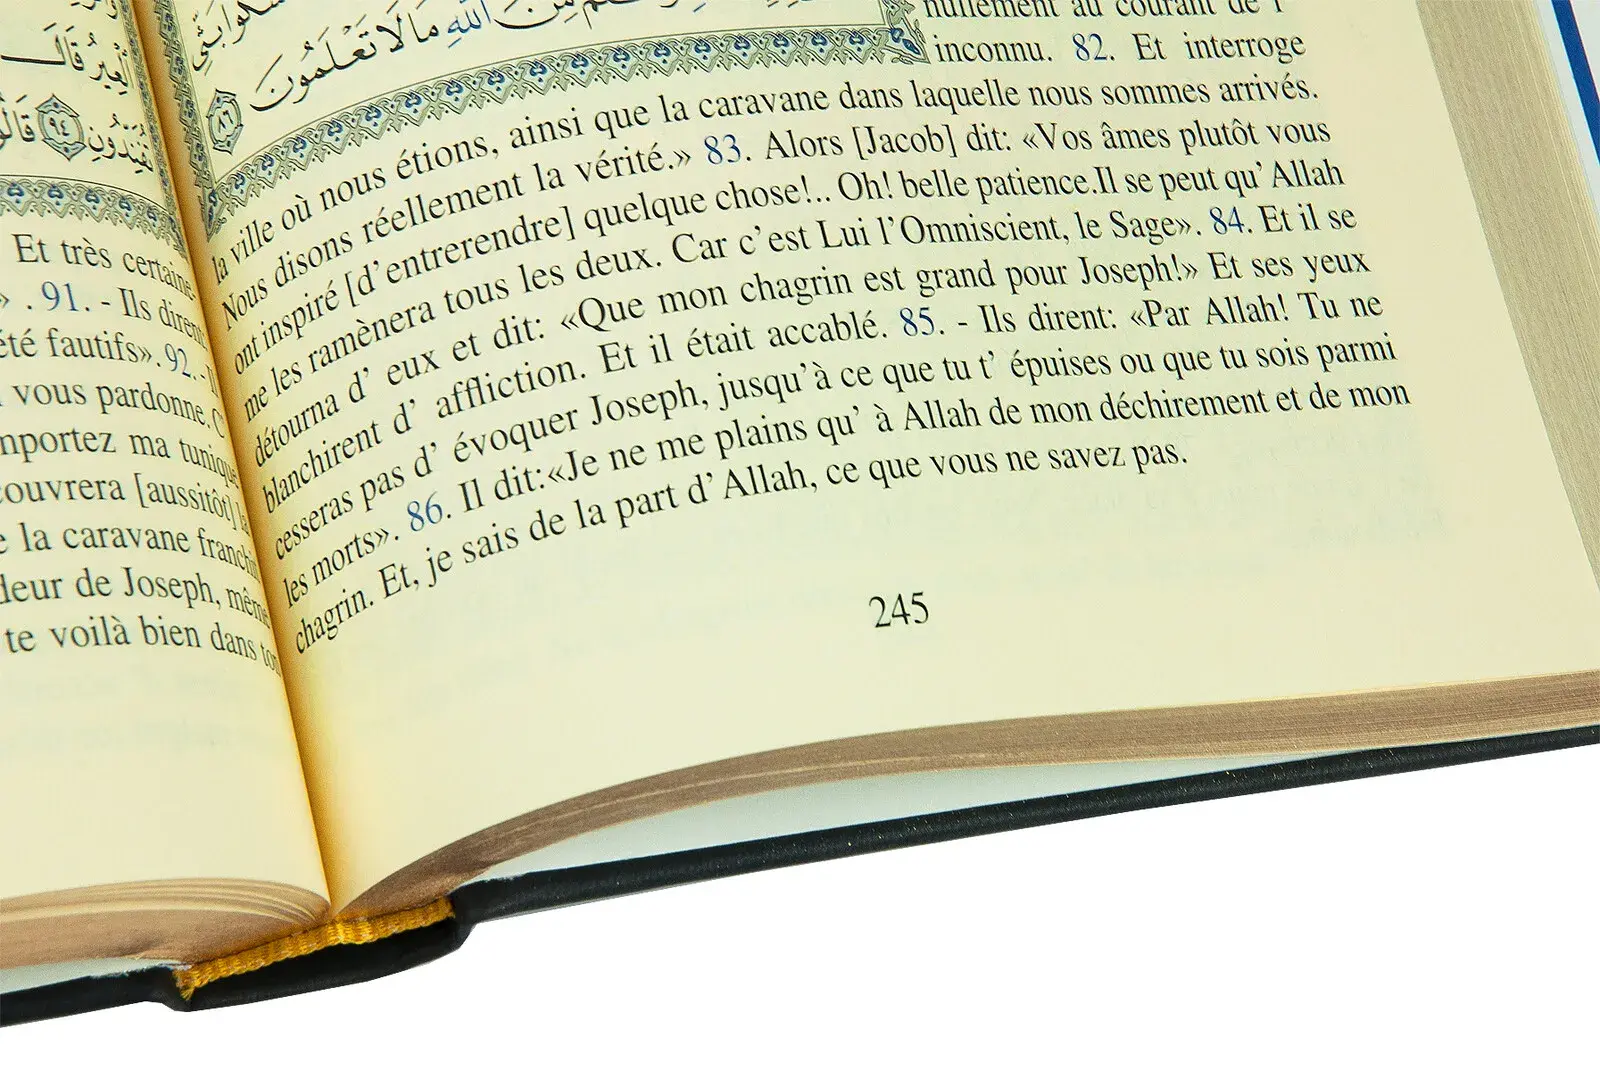 لَعِيرُ قَالَ
تُفَنِّدُونِ ٩٤ قَالُو
Et très certaine-
» . 91. - Ils dirent
été fautifs». 92. -
vous pardonne.
mportez ma tunique
couvrera [aussitôt] la
la caravane franchit
deur de Joseph, même
te voilà bien dans ton
مِنَ اللَّهِ مَا لَا تَعْلَمُونَ ٨٦
nullement au courant de l'
inconnu. 82. Et interroge
la ville où nous étions, ainsi que la caravane dans laquelle nous sommes arrivés.
Nous disons réellement la vérité.» 83. Alors [Jacob] dit: «Vos âmes plutôt vous
ont inspiré [d'entrerendre] quelque chose!.. Oh! belle patience.Il se peut qu' Allah
me les ramènera tous les deux. Car c'est Lui l'Omniscient, le Sage». 84. Et il se
détourna d' eux et dit: «Que mon chagrin est grand pour Joseph!» Et ses yeux
blanchirent d' affliction. Et il était accablé. 85. - Ils dirent: «Par Allah! Tu ne
cesseras pas d' évoquer Joseph, jusqu'à ce que tu t' épuises ou que tu sois parmi
les morts». 86. Il dit:«Je ne me plains qu' à Allah de mon déchirement et de mon
chagrin. Et, je sais de la part d' Allah, ce que vous ne savez pas.
245